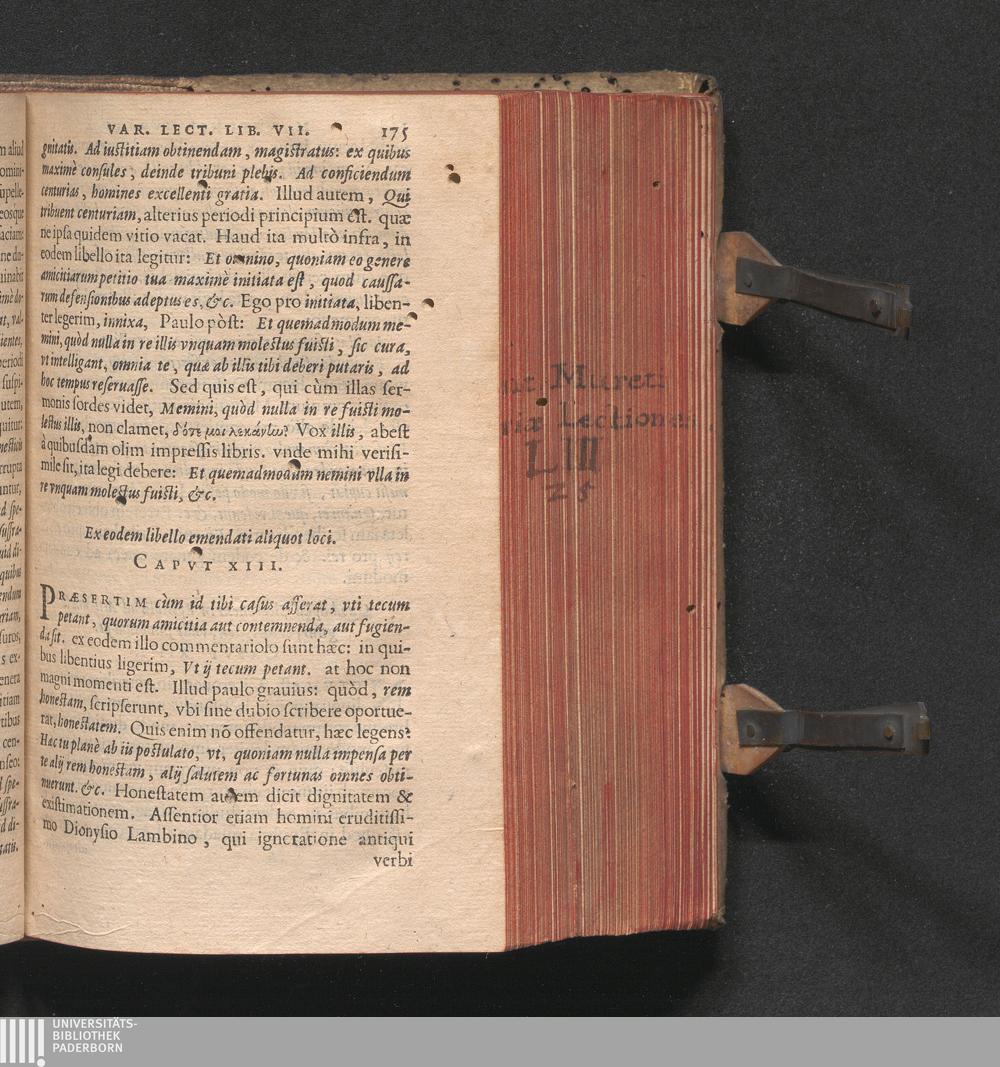 VAR. LECT. LIB. VII. 175
gnitatis. Ad iustitiam obtinendam, magistratus: ex quibus
maximè consules, deinde tribuni plebis. Ad conficiendum
centurias, homines excellenti gratia. Illud autem, Qui
tribuent centuriam, alterius periodi principium est. quæ
ne ipsa quidem vitio vacat. Haud ita multò infra, in
eodem libello ita legitur: Et omnino, quoniam eo genere
amicitiarum petitio tua maximè initiata est, quod caussa-
rum defensionibus adeptus es, &c. Ego pro initiata, liben-
ter legerim, innixa, Paulo pòst: Et quemadmodum me-
mini, quòd nulla in re illis vnquam molestus fuisti, sic cura,
vt intelligant, omnia te, quæ ab illis tibi deberi putaris, ad
hoc tempus reseruasse. Sed quis est, qui cùm illas ser-
monis sordes videt, Memini, quòd nulla in re fuisti mo-
lestus illis, non clamet, δότε μοι λεκάνω? Vox illis, abest
à quibusdam olim impressis libris. vnde mihi verisi-
mile sit, ita legi debere: Et quemadmodum nemini vlla in
re vnquam molestus fuisti, &c.
Ex eodem libello emendati aliquot loci.
CAPVT XIII.
PRÆSERTIM cùm id tibi casus afferat, vti tecum
petant, quorum amicitia aut contemnenda, aut fugien-
da sit. ex eodem illo commentariolo sunt hæc: in qui-
bus libentius ligerim, Vt ij tecum petant. at hoc non
magni momenti est. Illud paulo grauius: quòd, rem
honestam, scripserunt, vbi sine dubio scribere oportue-
rat, honestatem. Quis enim nõ offendatur, hæc legens?
Hæc tu planè ab iis postulato, vt, quoniam nulla impensa per
te alij rem honestam, alij salutem ac fortunas omnes obti-
nuerunt. &c. Honestatem autem dicit dignitatem &
existimationem. Assentior etiam homini eruditissi-
mo Dionysio Lambino, qui ignoratione antiqui
verbi
Mureti
Lectiones
LIII
25
UNIVERSITÄTS-
BIBLIOTHEK
PADERBORN